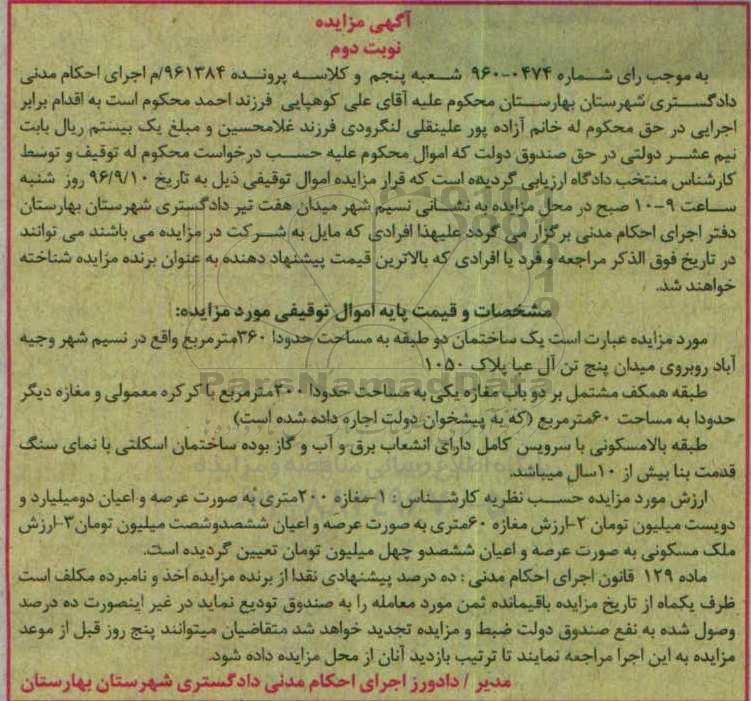 آگهی مزایده
نوبت دوم
به موجب رای شماره ۰۴۷۴-۹۶۰ شعبه پنجم و کلاسه پرونده ۹۶۱۳۸۴/م اجرای احکام مدنی
دادگستری شهرستان بهارستان محکوم علیه آقای علی کوهپایی فرزند احمد محکوم است به اقدام برابر
اجرایی در حق محکوم له خانم آزاده پور علینقلی لنگرودی فرزند غلامحسین و مبلغ یک بیستم ریال بابت
نیم عشر دولتی در حق صندوق دولت که اموال محکوم علیه حسب درخواست محکوم له توقیف و توسط
کارشناس منتخب دادگاه ارزیابی گردیده است که قرار مزایده اموال توقیفی ذیل به تاریخ ۹۶/۹/۱۰ روز شنبه
ساعت ۹-۱۰ صبح در محل مزایده به نشانی نسیم شهر میدان هفت تیر دادگستری شهرستان بهارستان
دفتر اجرای احکام مدنی برگزار می گردد علیهذا افرادی که مایل به شرکت در مزایده می باشند می توانند
در تاریخ فوق الذکر مراجعه و فرد یا افرادی که بالاترین قیمت پیشنهاد دهنده به عنوان برنده مزایده شناخته
خواهند شد.
مشخصات و قیمت پایه اموال توقیفی مورد مزایده:
مورد مزایده عبارت است یک ساختمان دو طبقه به مساحت حدودا ۳۶۰مترمربع واقع در نسیم شهر وجیه
آباد روبروی میدان پنج تن آل عبا پلاک ۱۰۵۰
طبقه همکف مشتمل بر دو باب مغازه یکی به مساحت حدودا ۳۰۰مترمربع با کرکره معمولی و مغازه دیگر
حدودا به مساحت ۶۰مترمربع (که به پیشخوان دولت اجاره داده شده است)
طبقه بالامسکونی با سرویس کامل دارای انشعاب برق و آب و گاز بوده ساختمان اسکلتی با نمای سنگ
قدمت بنا بیش از ۱۰سال میباشد.
ارزش مورد مزایده حسب نظریه کارشناس: ۱-مغازه ۲۰۰متری به صورت عرصه و اعیان دومیلیارد و
دویست میلیون تومان ۲-ارزش مغازه ۶۰متری به صورت عرصه و اعیان ششصدوشصت میلیون تومان۳-ارزش
ملک مسکونی به صورت عرصه و اعیان ششصدو چهل میلیون تومان تعیین گردیده است.
ماده ۱۲۹ قانون اجرای احکام مدنی: ده درصد پیشنهادی نقدا از برنده مزایده اخذ و نامبرده مکلف است
ظرف یکماه از تاریخ مزایده باقیمانده ثمن مورد معامله را به صندوق تودیع نماید در غیر اینصورت ده درصد
وصول شده به نفع صندوق دولت ضبط و مزایده تجدید خواهد شد متقاضیان میتوانند پنج روز قبل از موعد
مزایده به این اجرا مراجعه نمایند تا ترتیب بازدید آنان از محل مزایده داده شود.
مدیر / دادورز اجرای احکام مدنی دادگستری شهرستان بهارستان
ParsNamadData